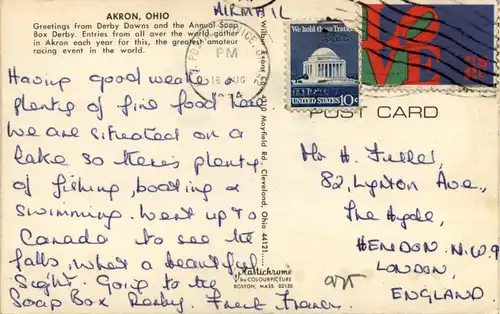 AIRMAIL
AKRON, OHIO
Greetings from Derby Downs and the Annual Soap
Box Derby. Entries from all over the world gather
in Akron each year for this, the greatest amateur
racing event in the world.
Having good weather
plenty of fine food here
We are situated on a
lake so there's plenty
of fishing, boating &
swimming. Went up to
Canada to see the
falls, what a beautiful
sight. Going to the
Soap Box Derby.
PM
16 AUG
1974
We hold these Truths
UNITED STATES 10c
LOVE
POST CARD
Mr H. Fuller,
82, Lynton Ave.,
The Hyde,
HENDON N.W.9
LONDON,
ENGLAND.
Wilbur Evans Co., Mayfield Rd., Cleveland, Ohio 44121
Plastichrome
by COLOURPICTURE
BOSTON, MASS. 02130